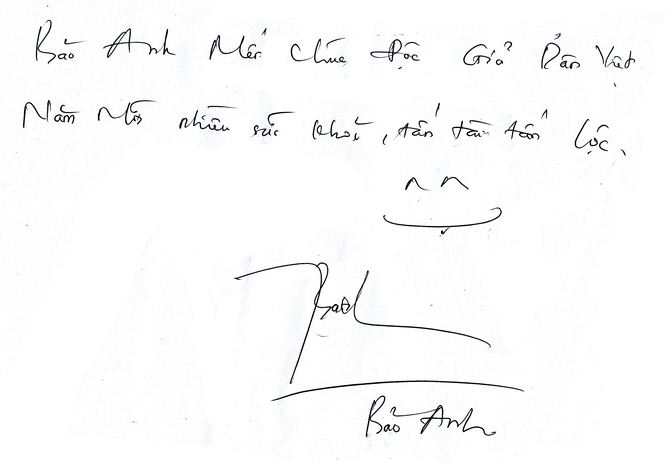 Bảo Anh Mến chúc độc Giả Dân Việt
Năm Mới nhiều sức khỏe, tấn tài tấn lộc.
Bảo Anh